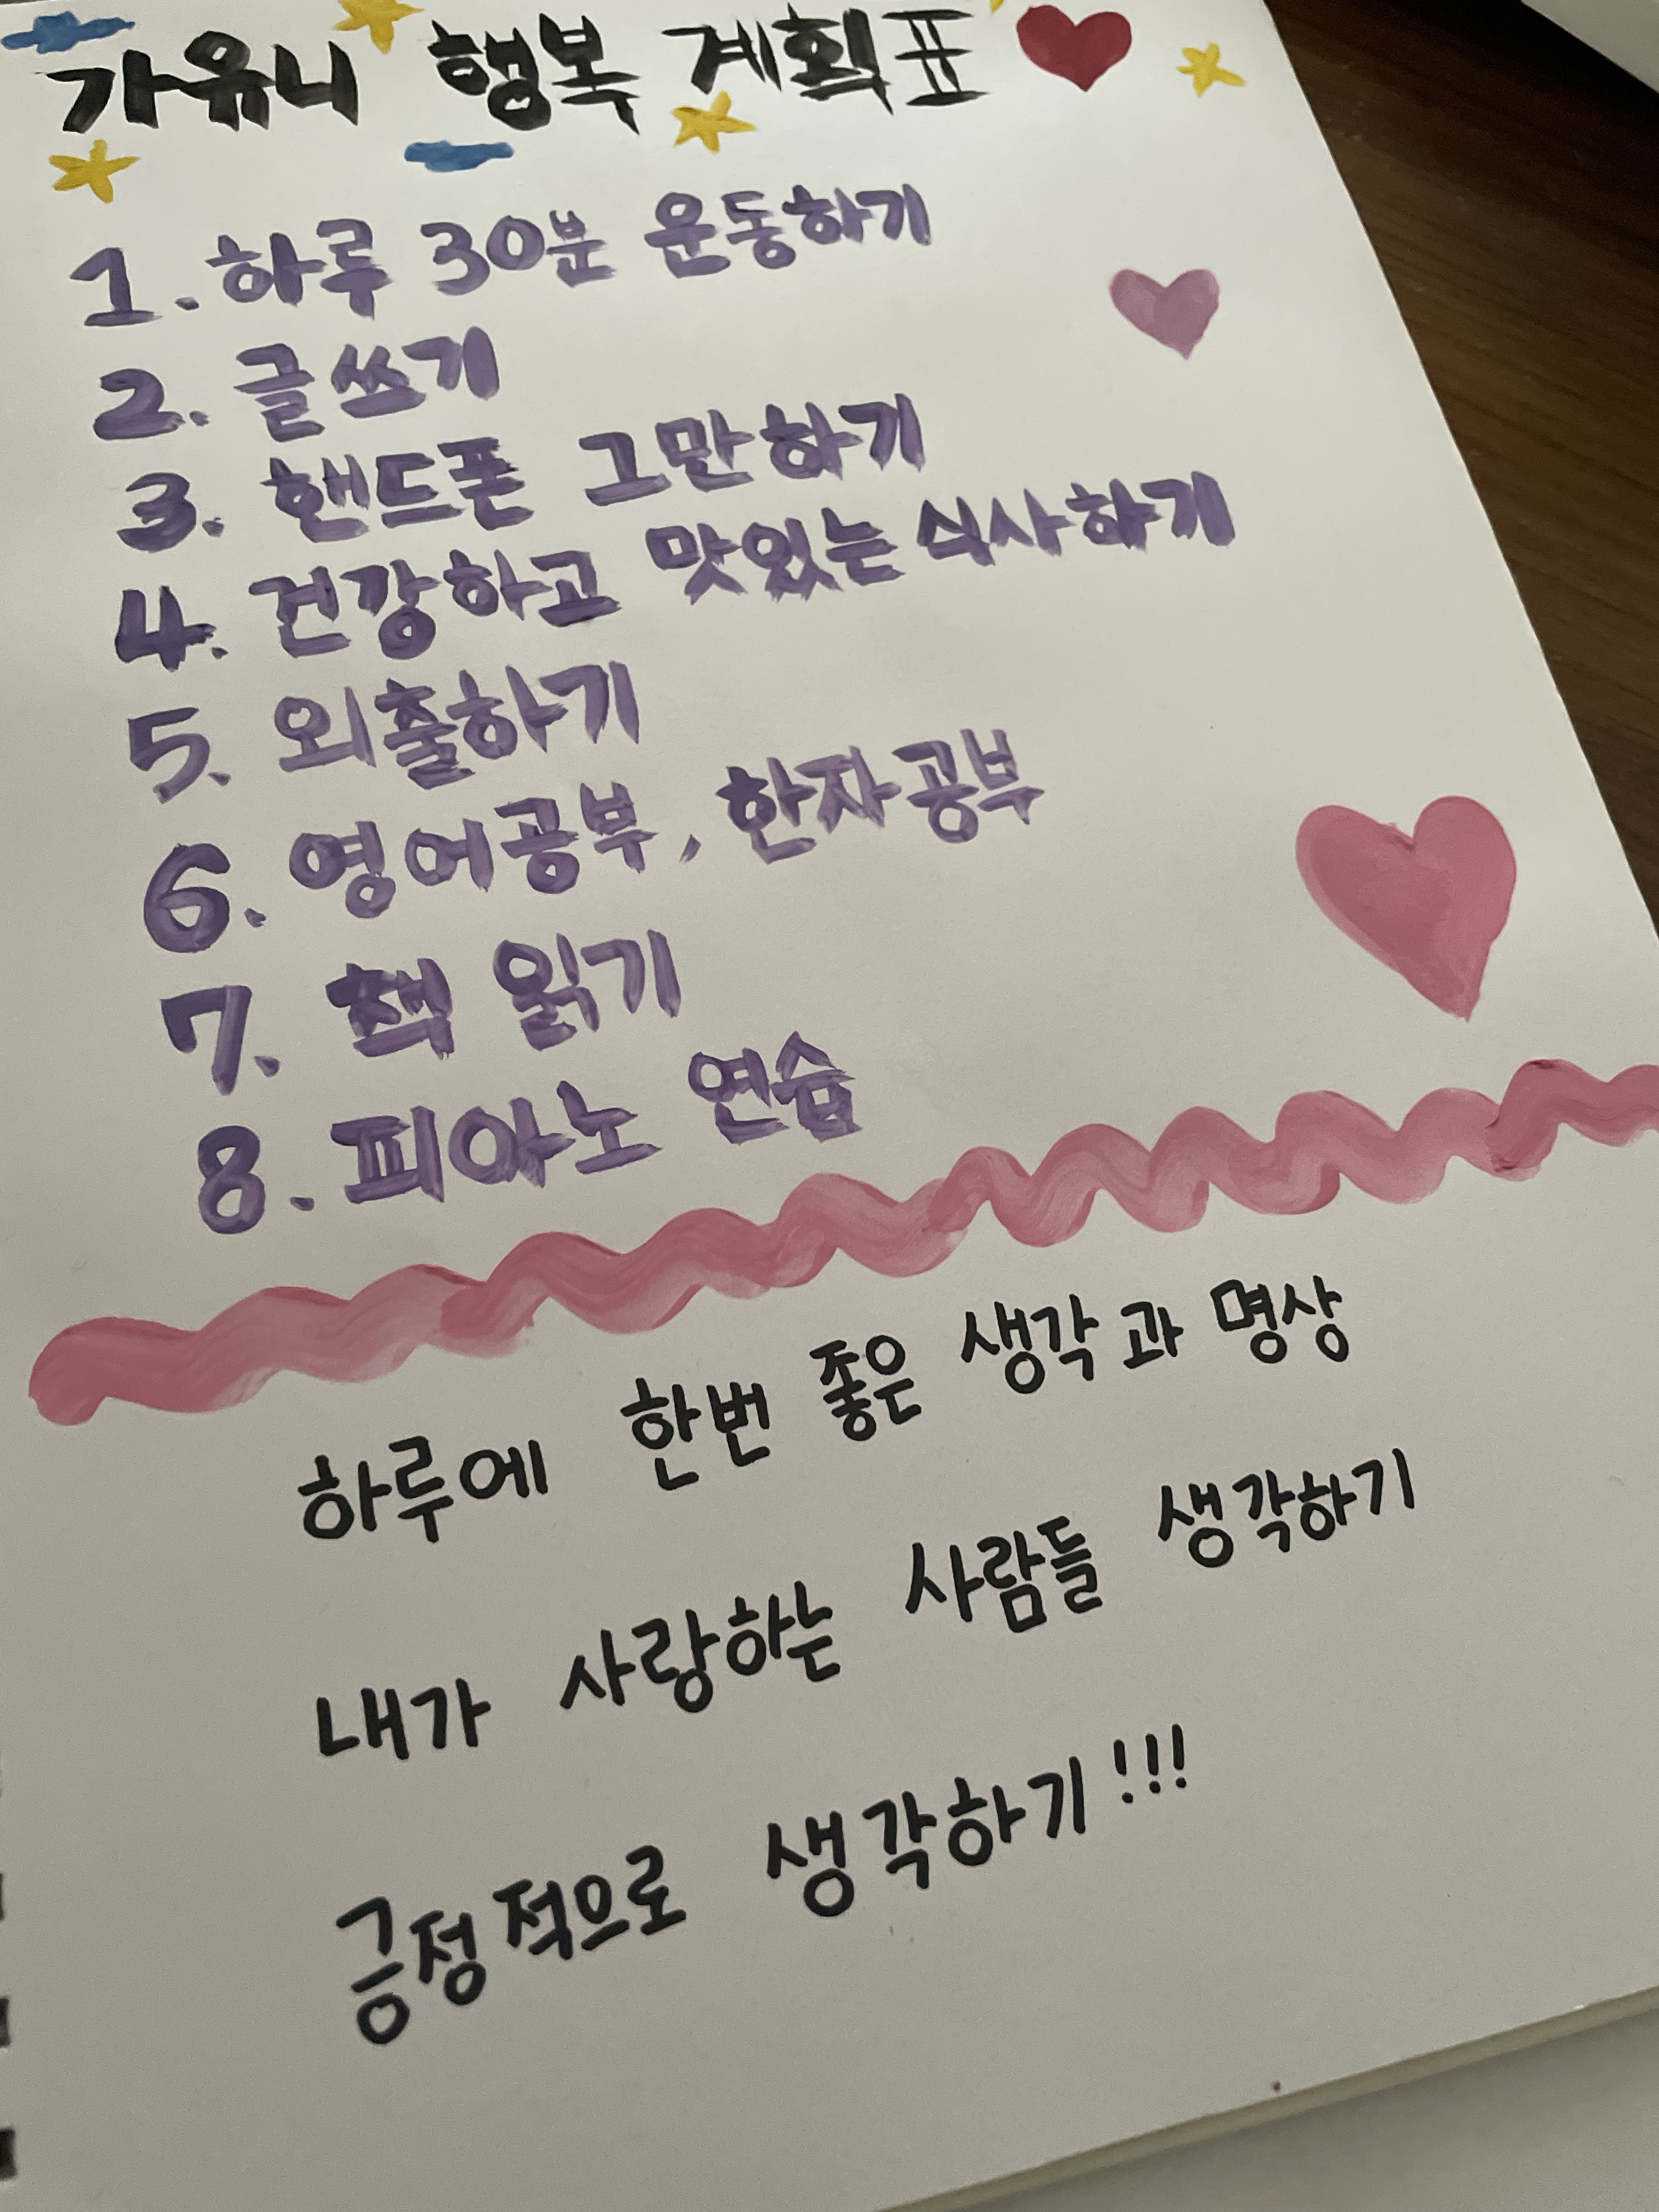 가유니 행복 계획표
1. 하루 30분 운동하기
2. 글쓰기
3. 핸드폰 그만하기
4. 건강하고 맛있는 식사하기
5. 외출하기
6. 영어공부, 한자공부
7. 책 읽기
8. 피아노 연습
하루에 한번 좋은 생각과 명상
내가 사랑하는 사람들 생각하기
긍정적으로 생각하기!!!